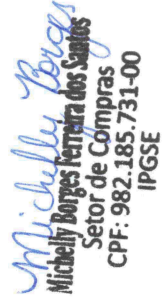 Michelly Borges
Michelly Borges Ferreira dos Santos
Setor de Compras
CPF: 982.185.731-00
IPGSE